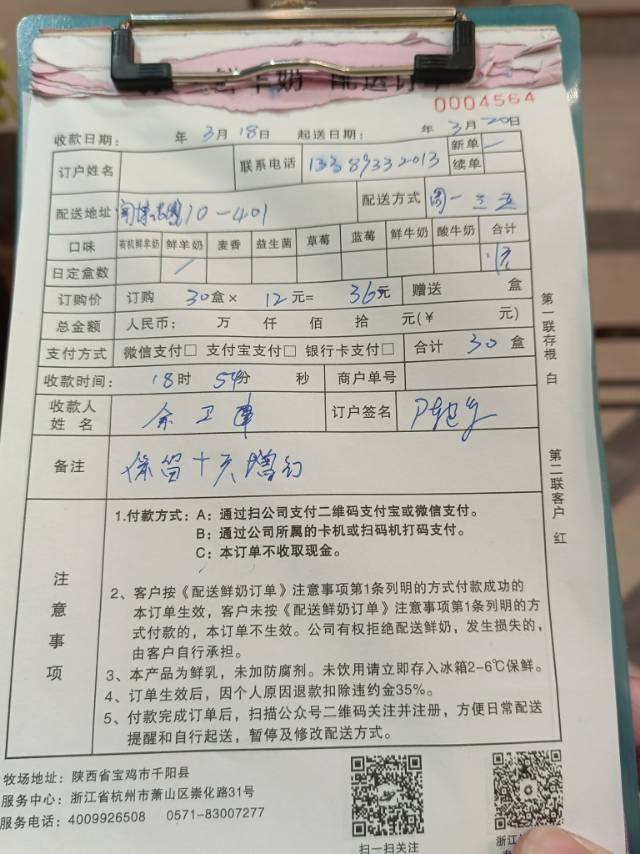 鲜牛奶 配送订单
0004564
收款日期： 年 3月 18日 起送日期： 年 3月 20日
订户姓名 联系电话 新单 续单
配送地址 10-401 配送方式 周一 三 五
口味 有机鲜羊奶 鲜羊奶 麦香 益生菌 草莓 蓝莓 鲜牛奶 酸牛奶 合计
日定盒数
订购价 订购 30盒× 12元= 36元 赠送 盒
总金额 人民币： 万 仟 佰 拾 元(￥ 元)
支付方式 微信支付□ 支付宝支付□ 银行卡支付□ 合计 30盒
收款时间： 18时 54分 秒 商户单号
收款人姓名 余卫 订户签名
备注 保留十天
注意事项
1.付款方式：A：通过扫公司支付二维码支付宝或微信支付。
B：通过公司所属的卡机或扫码机打码支付。
C：本订单不收取现金。
2、客户按《配送鲜奶订单》注意事项第1条列明的方式付款成功的
本订单生效，客户未按《配送鲜奶订单》注意事项第1条列明的方
式付款的，本订单不生效。公司有权拒绝配送鲜奶，发生损失的，
由客户自行承担。
3、本产品为鲜乳，未加防腐剂。未饮用请立即存入冰箱2-6℃保鲜。
4、订单生效后，因个人原因退款扣除违约金35%。
5、付款完成订单后，扫描公众号二维码关注并注册，方便日常配送
提醒和自行起送，暂停及修改配送方式。
第一联存根 白
第二联客户 红
牧场地址：陕西省宝鸡市千阳县
服务中心：浙江省杭州市萧山区崇化路31号
服务电话：4009926508 0571-83007277
扫一扫关注
浙江